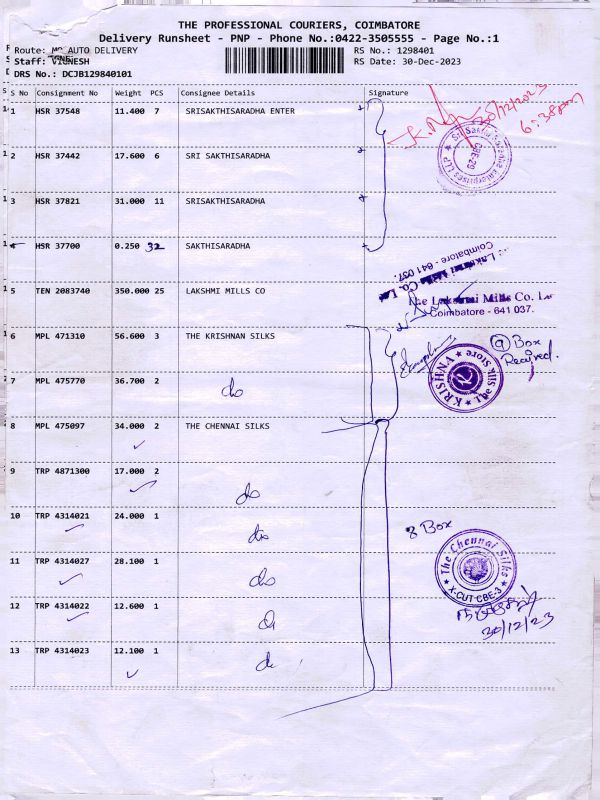 THE PROFESSIONAL COURIERS, COIMBATORE
Delivery Runsheet - PNP - Phone No.:0422-3505555 - Page No.:1
Route: MR AUTO DELIVERY RS No.: 1298401
Staff: VIGNESH RS Date: 30-Dec-2023
DRS No.: DCJB129840101
S No Consignment No Weight PCS Consignee Details Signature
1 HSR 37548 11.400 7 SRISAKTHISARADHA ENTER
30/12/2023
6:38pm
2 HSR 37442 17.600 6 SRI SAKTHISARADHA
CBE-29
3 HSR 37821 31.000 11 SRISAKTHISARADHA
4 HSR 37700 0.250 32 SAKTHISARADHA
Coimbatore - 641 037.
5 TEN 2083740 350.000 25 LAKSHMI MILLS CO
The Lakshmi Mills Co. L
Coimbatore - 641 037.
6 MPL 471310 56.600 3 THE KRISHNAN SILKS
Box
Received.
KRISHNA The Silk Store
7 MPL 475770 36.700 2 do
8 MPL 475097 34.000 2 THE CHENNAI SILKS
9 TRP 4871300 17.000 2 do
10 TRP 4314021 24.000 1 do
8 Box
11 TRP 4314027 28.100 1 do
The Chennai Silks
X-CUT CBE-3
12 TRP 4314022 12.600 1 do
30/12/23
13 TRP 4314023 12.100 1 do